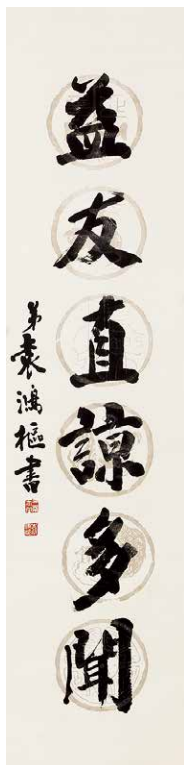 益友直諒多聞
弟袁鴻樞書